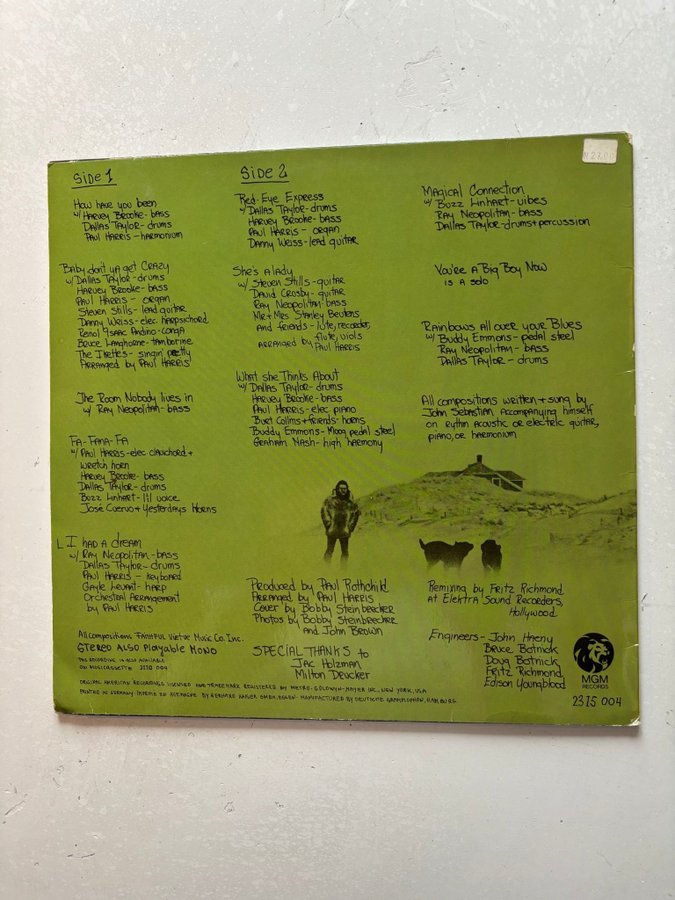 Side 1
How have you been
w/ Harvey Brooke - bass
Dallas Taylor - drums
Paul Harris - harmonium
Baby don't ya get Crazy
w/ Dallas Taylor - drums
Harvey Brooke - bass
Paul Harris - organ
Steven Stills - lead guitar
Danny Weiss - elec. harpsichord
Reno! Isaac Andino - conga
Bruce Langhorne - tamborine
The Ikettes - singin' pretty
Arranged by Paul Harris
The Room Nobody lives in
w/ Ray Neopolitan - bass
Fa-Fana-Fa
w/ Paul Harris - elec clavichord +
wretch horn
Harvey Brooke - bass
Dallas Taylor - drums
Buzz Linhart - lil voice
José Cuervo + Yesterdays Horns
I had a dream
w/ Ray Neopolitan - bass
Dallas Taylor - drums
Paul Harris - keyboard
Gayle Levant - harp
Orchestral Arrangement
by Paul Harris
All compositions Faithful Virtue Music Co. Inc.
Stereo Also Playable Mono
This recording is also available
on Musicassette 3110 004
Original American recordings licensed and trademark registered by Metro-Goldwyn-Mayer Inc., New York, USA
Printed in Germany Imprimé en Allemagne by Gerhard Kaiser GmbH, Essen - Manufactured by Deutsche Grammophon, Hamburg
Side 2
Red-Eye Express
w/ Dallas Taylor - drums
Harvey Brooke - bass
Paul Harris - organ
Danny Weiss - lead guitar
She's a lady
w/ Steven Stills - guitar
David Crosby - guitar
Ray Neopolitan - bass
Mr + Mrs Stanley Beutens
and friends - lute, recorder,
flute, viols
arranged by Paul Harris
What she Thinks About
w/ Dallas Taylor - drums
Harvey Brooke - bass
Paul Harris - elec piano
Burt Collins + friends - horns
Buddy Emmons - Moog pedal steel
Graham Nash - high harmony
Magical Connection
w/ Buzz Linhart - vibes
Ray Neopolitan - bass
Dallas Taylor - drums + percussion
You're a Big Boy Now
is a solo
Rainbows All over your Blues
w/ Buddy Emmons - pedal steel
Ray Neopolitan - bass
Dallas Taylor - drums
All compositions written + sung by
John Sebastian accompanying himself
on rythm acoustic or electric guitar,
piano, or harmonium
Produced by Paul Rothchild
Arranged by Paul Harris
Cover by Bobby Steinbrecker
Photos by Bobby Steinbrecker
and John Brown
SPECIAL THANKS to
Jac Holzman
Milton Deucker
Remixing by Fritz Richmond
at Elektra Sound Recorders,
Hollywood
Engineers - John Haeny
Bruce Botnick
Doug Botnick
Fritz Richmond
Edison Youngblood
MGM
RECORDS
2315 004